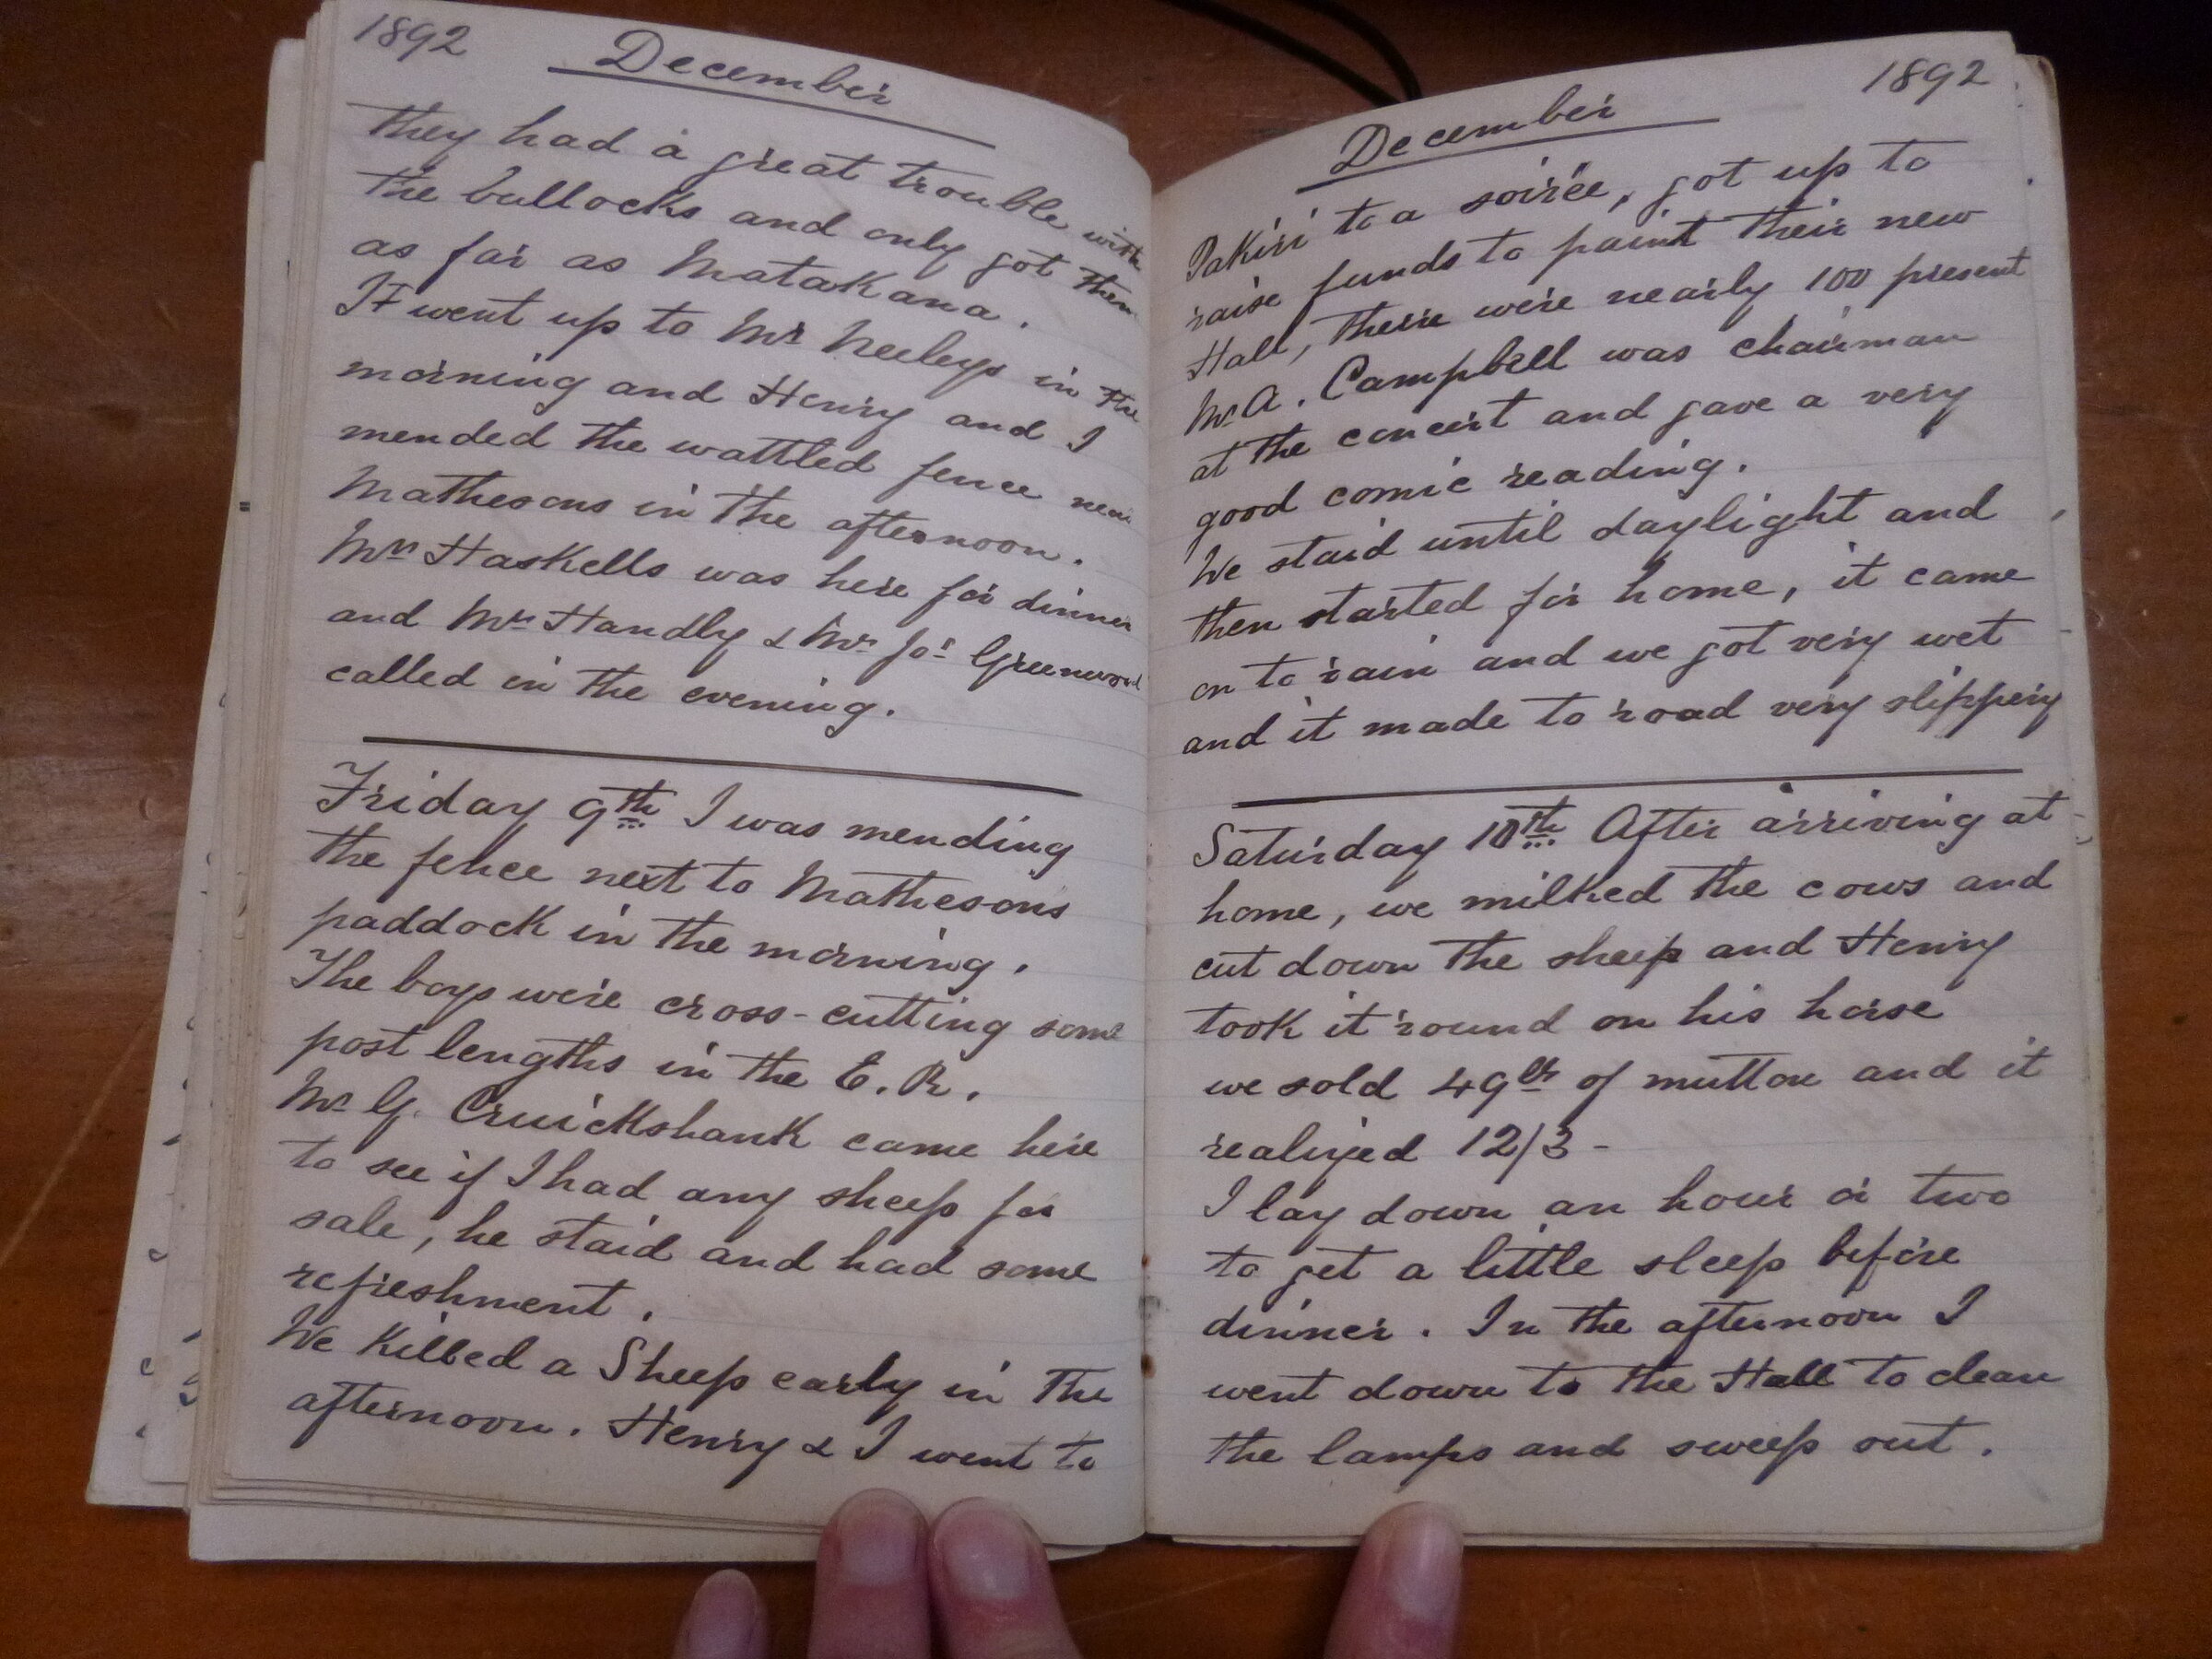 1892 December
they had a great trouble with
the bullocks and only got them
as far as Matakana.
It went up to Mr Neeleys in the
morning and Henry and I
mended the wattled fence near
Mathesons in the afternoon.
Mrs Haskells was here for dinner
and Mrs Handly & Mr Jos Greenwood
called in the evening.
Friday 9th I was mending
the fence next to Mathesons
paddock in the morning.
The boys were cross-cutting some
post lengths in the E. R.
Mr G. Cruickshank came here
to see if I had any sheep for
sale, he staid and had some
refreshment.
We Killed a Sheep early in the
afternoon. Henry & I went to
December 1892
Pakiri to a soirée, got up to
raise funds to paint their new
Hall, there were nearly 100 present
Mr A. Campbell was chairman
at the concert and gave a very
good comic reading.
We staid until daylight and
then started for home, it came
on to rain and we got very wet
and it made to road very slippery
Saturday 10th After arriving at
home, we milked the cows and
cut down the sheep and Henry
took it round on his horse
we sold 49lb of mutton and it
realized 12/3 -
I lay down an hour or two
to get a little sleep before
dinner. In the afternoon I
went down to the Hall to clean
the lamps and sweep out.